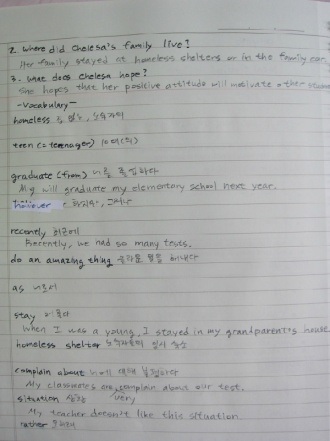 2. Where did Chelesa's family live?
Her family stayed at homeless shelters or in the family car.
3. What does Chelesa hope?
She hopes that her positive attitude will motivate other
-Vocabulary-
homeless 노숙자의
teen (=teenager) 10대(의)
graduate (from) 졸업하다
My will graduate my elementary school next year.
however 하지만, 그러나
recently 최근에
Recently, we had so many tests.
do an amazing thing 놀라운 일을 해내다
as 로서
stay 머물다
When I was a young, I stayed in my grandparent's house
homeless shelter 노숙자들의 임시 숙소
complain about 에 대해 불평하다
My classmates are complain about our test.
situation 상황
very
My teacher doesn't like this situation.
rather 오히려